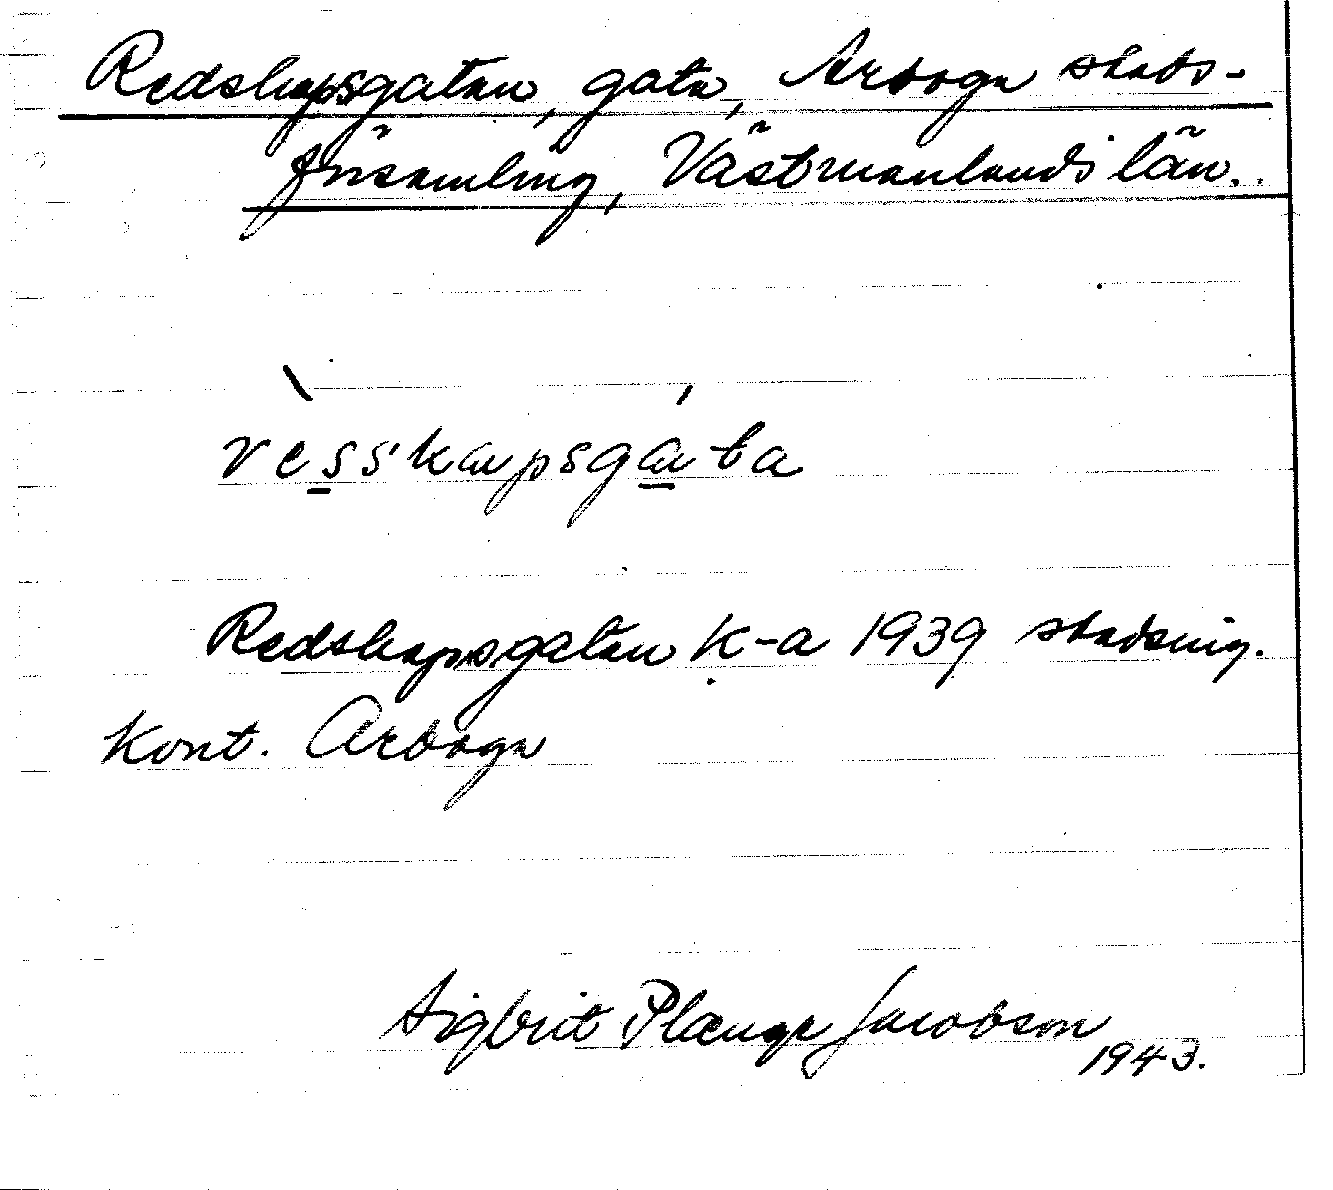 Redskapsgatan, gata, Arboga stads-
församling, Västmanlands län.
rèsskapsgáta
Redskapsgatan K-a 1939 stadsing.
Kont. Arboga
Sigbrit Plænge Jacobson
1943.